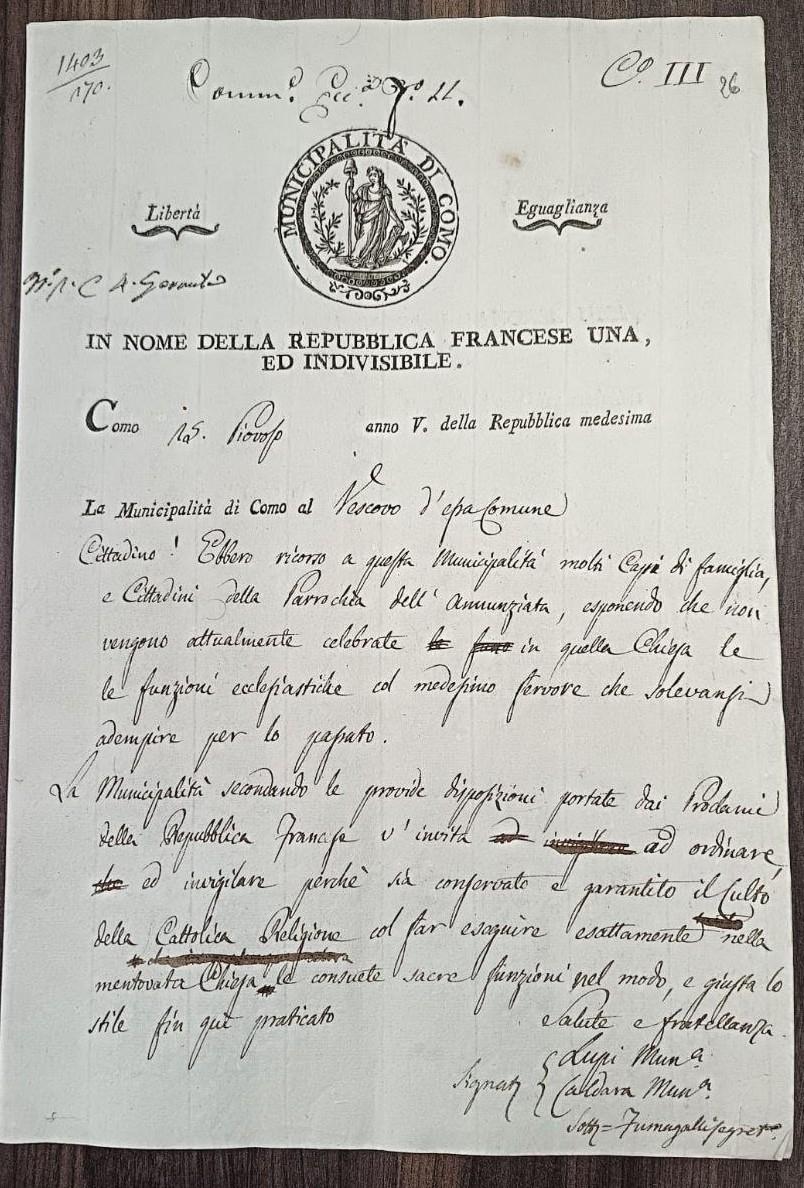 1403
170.
Comm.e Ecc.a N.o 11.
C.o III
26
MUNICIPALITÀ DI COMO.
Libertà
Eguaglianza
IN NOME DELLA REPUBBLICA FRANCESE UNA,
ED INDIVISIBILE.
Como 15. Piovoso anno V. della Repubblica medesima
La Municipalità di Como al Vescovo d'essa Comune
Cittadino! Ebbero ricorso a questa Municipalità molti Capi di famiglia,
e Cittadini della Parrochia dell'Annunziata, esponendo che non
vengono attualmente celebrate in quella Chiesa le
le funzioni ecclesiastiche col medesimo fervore che solevansi
adempire per lo passato.
La Municipalità secondando le provide disposizioni portate dai Proclami
della Repubblica Francese v'invita ad ordinare,
ed invigilare perchè sia conservato e garantito il Culto
della Cattolica Religione col far eseguire esattamente nella
mentovata Chiesa le consuete sacre funzioni nel modo, e giusta lo
stile fin quì praticato
Salute e fratellanza.
Signati { Lupi Mun.e
Caldara Mun.e
Sott.= Fumagalli Segret.o